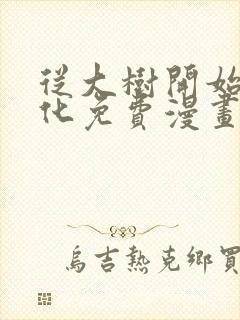 從大樹開始
化免費漫畫
烏吉熱克鄉買